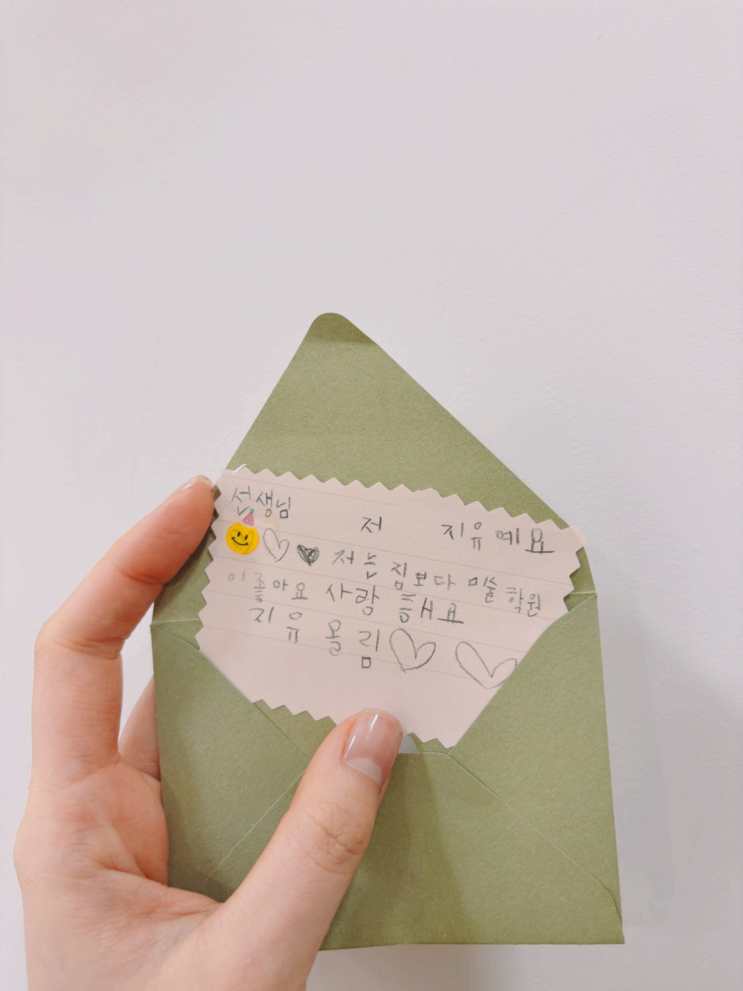 선생님 저 지유예요
저는 집보다 미술학원
이 좋아요 사랑해요
지유 올림